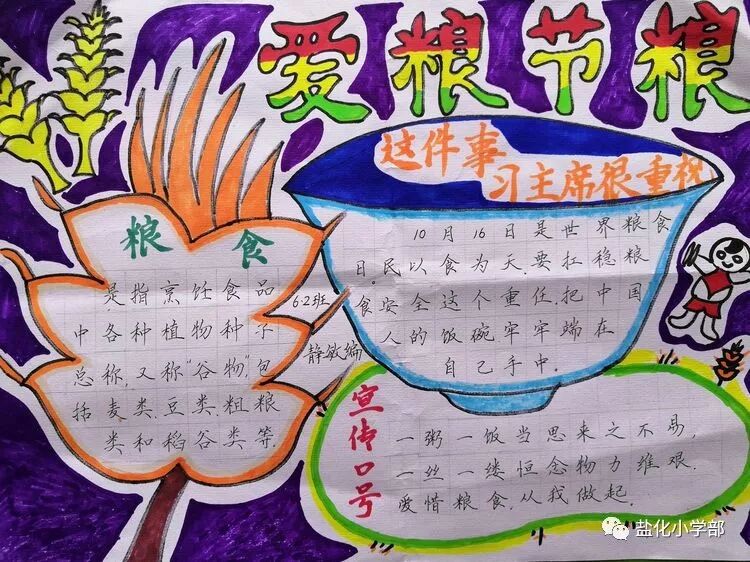 爱粮节粮
这件事
习主席很重视
粮食
是指烹饪食品
中各种植物种子
总称,又称"谷物"包
括麦类,豆类,粗粮
类和稻谷类等.
6.2班
静敏编
10月16日是世界粮食
日.民以食为天.要扛稳粮
食安全这个重任.把中国
人的饭碗牢牢端在
自己手中.
宣传口号
一粥一饭当思来之不易,
一丝一缕恒念物力维艰.
爱惜粮食.从我做起.
盐化小学部